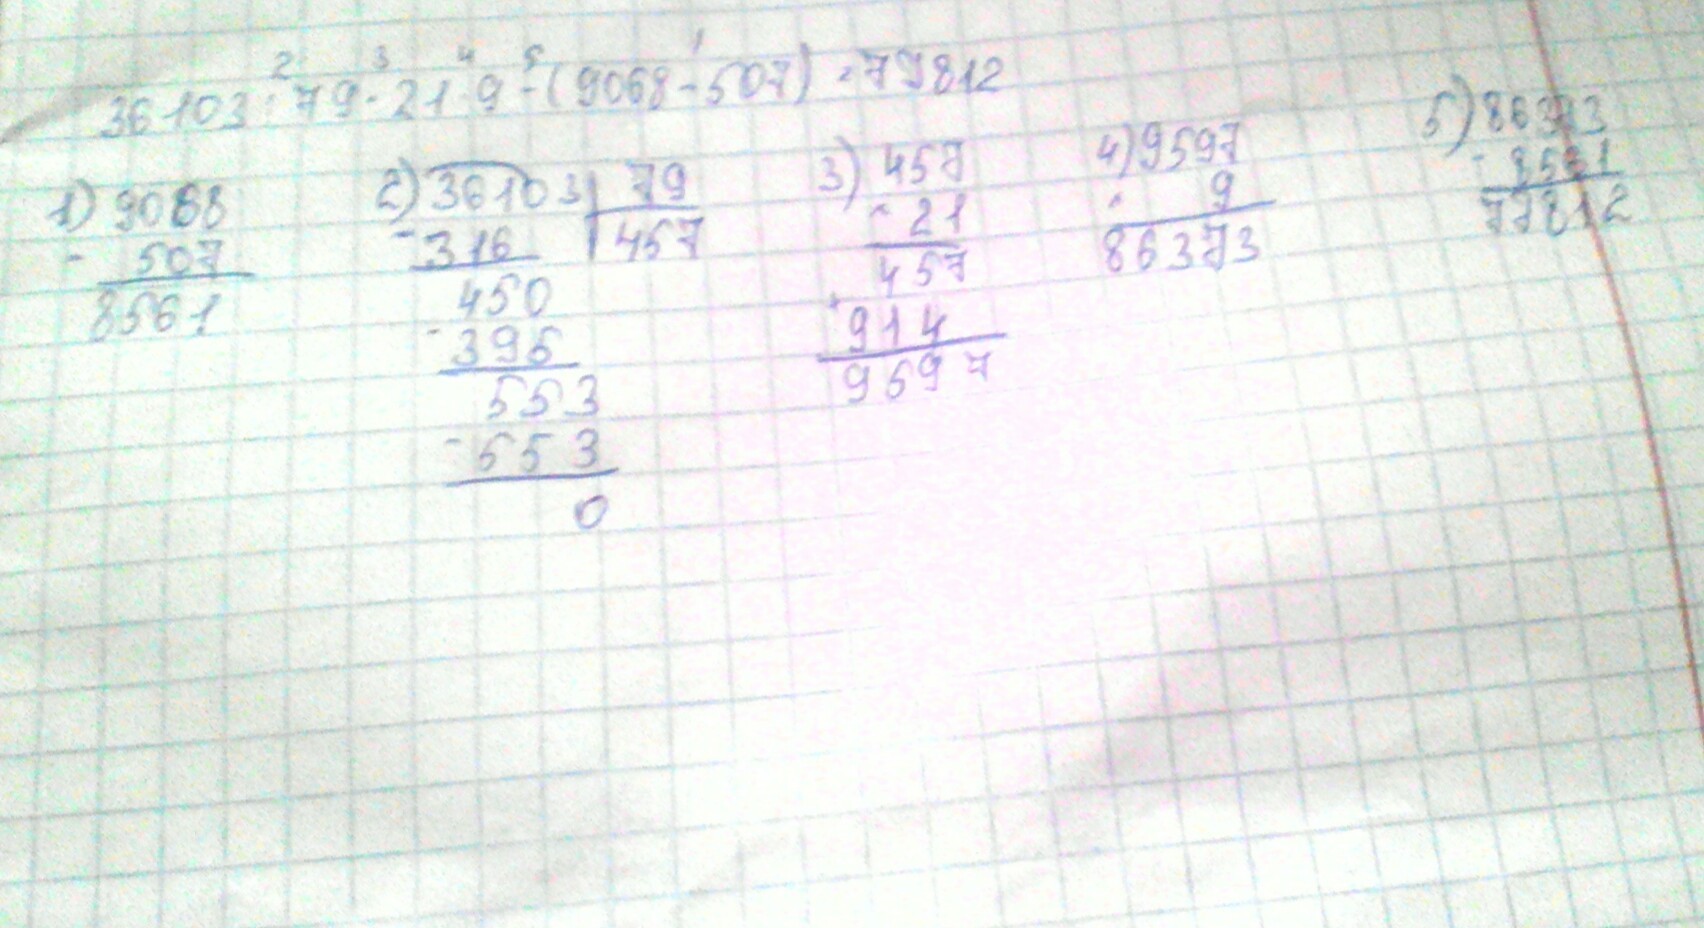 2 3 4 5 1
36103 : 79 · 21 · 9 - (9068 - 507) = 77812
1) 9068
- 507
8561
2) 36103 | 79
- 316 | 457
450
- 395
553
- 553
0
3) 457
× 21
457
+ 914
9597
4) 9597
× 9
86373
5) 86373
- 8561
77812